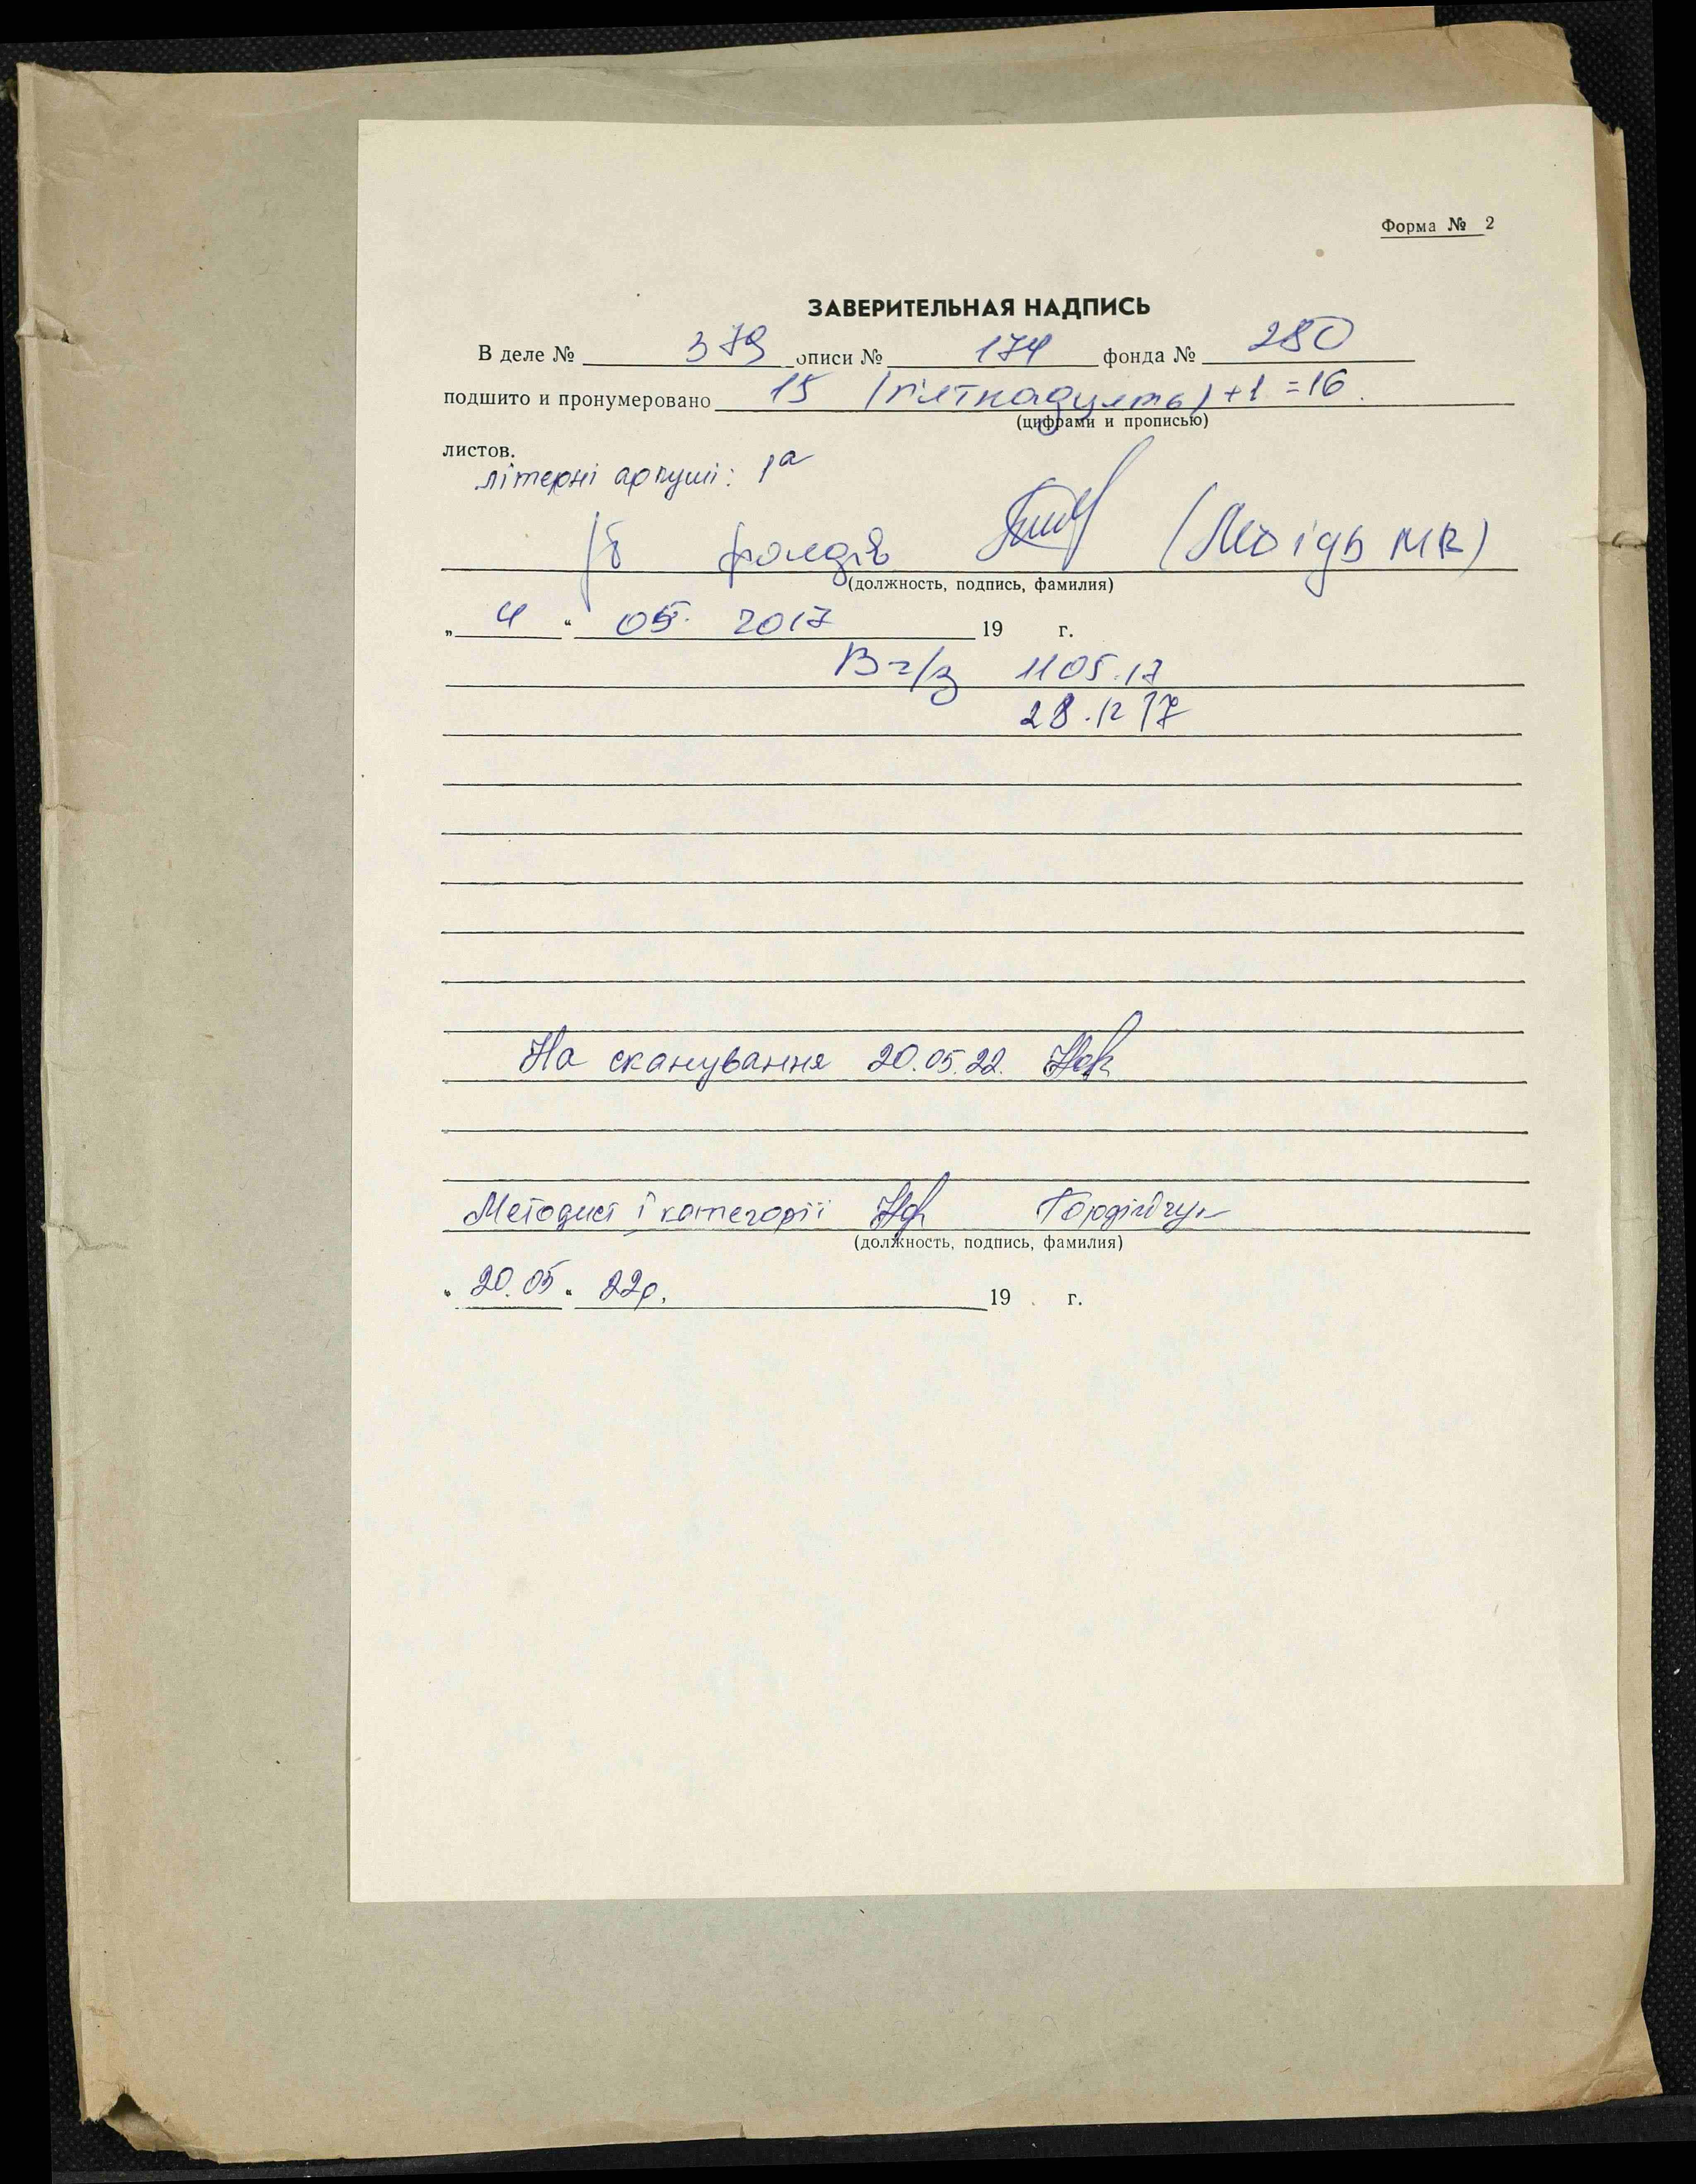 Форма № 2
ЗАВЕРИТЕЛЬНАЯ НАДПИСЬ
В деле № 379 описи № 174 фонда № 280
подшито и пронумеровано 15 (п'ятнадцять) +1 =16.
(цифрами и прописью)
листов.
літерні аркуші: 1а
фондів
(должность, подпись, фамилия)
„ 4 “ 05. 2017 19 г.
В г/з 1105.17
28.12 17
На сканування 20.05.22.
Методист І категорії Гордійчук
(должность, подпись, фамилия)
„ 20.05 “ 22р. 19 г.